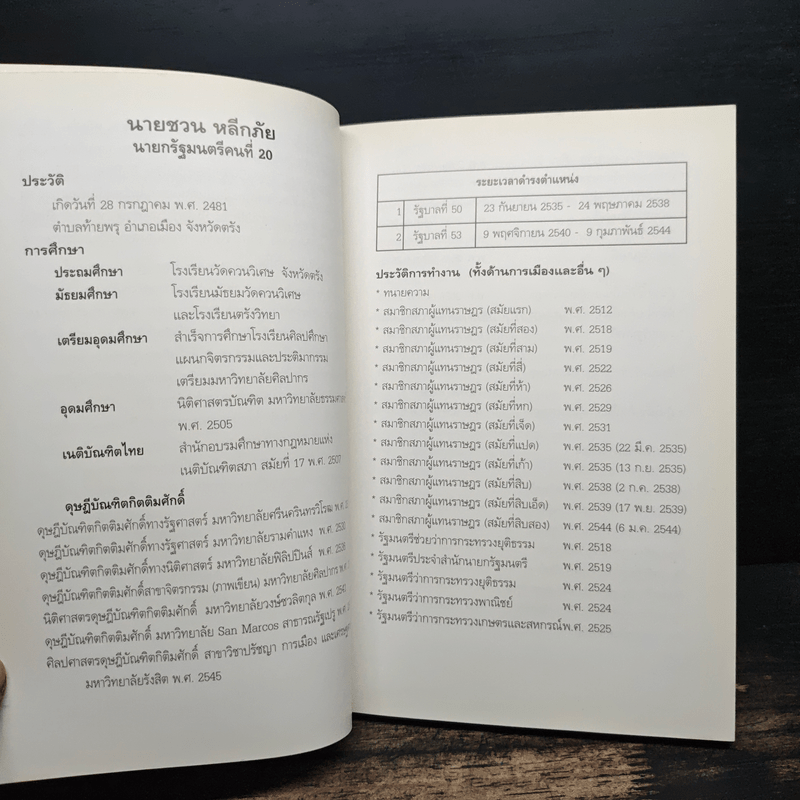 นายชวน หลีกภัย
นายกรัฐมนตรีคนที่ 20
ประวัติ
เกิดวันที่ 28 กรกฎาคม พ.ศ. 2481
ตำบลท้ายพรุ อำเภอเมือง จังหวัดตรัง
การศึกษา
ประถมศึกษา โรงเรียนวัดควนวิเศษ จังหวัดตรัง
มัธยมศึกษา โรงเรียนมัธยมวัดควนวิเศษ
และโรงเรียนตรังวิทยา
เตรียมอุดมศึกษา สำเร็จการศึกษาโรงเรียนศิลปศึกษา
แผนกจิตรกรรมและประติมากรรม
เตรียมมหาวิทยาลัยศิลปากร
อุดมศึกษา นิติศาสตรบัณฑิต มหาวิทยาลัยธรรมศาส
พ.ศ. 2505
เนติบัณฑิตไทย สำนักอบรมศึกษาทางกฎหมายแห่ง
เนติบัณฑิตสภา สมัยที่ 17 พ.ศ. 2507
ดุษฎีบัณฑิตกิตติมศักดิ์
ดุษฎีบัณฑิตกิตติมศักดิ์ทางรัฐศาสตร์ มหาวิทยาลัยศรีนครินทรวิโรฒ พ.ศ.
ดุษฎีบัณฑิตกิตติมศักดิ์ทางรัฐศาสตร์ มหาวิทยาลัยรามคำแหง พ.ศ. 2530
ดุษฎีบัณฑิตกิตติมศักดิ์ทางนิติศาสตร์ มหาวิทยาลัยฟิลิปปินส์ พ.ศ. 2536
ดุษฎีบัณฑิตกิตติมศักดิ์สาขาจิตรกรรม (ภาพเขียน) มหาวิทยาลัยศิลปากร พ.ศ.
นิติศาสตรดุษฎีบัณฑิตกิตติมศักดิ์ มหาวิทยาลัยวงษ์ชวลิตกุล พ.ศ. 2541
ดุษฎีบัณฑิตกิตติมศักดิ์ มหาวิทยาลัย San Marcos สาธารณรัฐเปรู พ.ศ.
ศิลปศาสตรดุษฎีบัณฑิตกิตติมศักดิ์ สาขาวิชาปรัชญา การเมือง และเศรษฐ
มหาวิทยาลัยรังสิต พ.ศ. 2545
ระยะเวลาดำรงตำแหน่ง
1 รัฐบาลที่ 50 23 กันยายน 2535 - 24 พฤษภาคม 2538
2 รัฐบาลที่ 53 9 พฤศจิกายน 2540 - 9 กุมภาพันธ์ 2544
ประวัติการทำงาน (ทั้งด้านการเมืองและอื่น ๆ)
* ทนายความ
* สมาชิกสภาผู้แทนราษฎร (สมัยแรก) พ.ศ. 2512
* สมาชิกสภาผู้แทนราษฎร (สมัยที่สอง) พ.ศ. 2518
* สมาชิกสภาผู้แทนราษฎร (สมัยที่สาม) พ.ศ. 2519
* สมาชิกสภาผู้แทนราษฎร (สมัยที่สี่) พ.ศ. 2522
* สมาชิกสภาผู้แทนราษฎร (สมัยที่ห้า) พ.ศ. 2526
* สมาชิกสภาผู้แทนราษฎร (สมัยที่หก) พ.ศ. 2529
* สมาชิกสภาผู้แทนราษฎร (สมัยที่เจ็ด) พ.ศ. 2531
* สมาชิกสภาผู้แทนราษฎร (สมัยที่แปด) พ.ศ. 2535 (22 มี.ค. 2535)
* สมาชิกสภาผู้แทนราษฎร (สมัยที่เก้า) พ.ศ. 2535 (13 ก.ย. 2535)
* สมาชิกสภาผู้แทนราษฎร (สมัยที่สิบ) พ.ศ. 2538 (2 ก.ค. 2538)
* สมาชิกสภาผู้แทนราษฎร (สมัยที่สิบเอ็ด) พ.ศ. 2539 (17 พ.ย. 2539)
* สมาชิกสภาผู้แทนราษฎร (สมัยที่สิบสอง) พ.ศ. 2544 (6 ม.ค. 2544)
* รัฐมนตรีช่วยว่าการกระทรวงยุติธรรม พ.ศ. 2518
* รัฐมนตรีประจำสำนักนายกรัฐมนตรี พ.ศ. 2519
* รัฐมนตรีว่าการกระทรวงยุติธรรม พ.ศ. 2524
* รัฐมนตรีว่าการกระทรวงพาณิชย์ พ.ศ. 2524
* รัฐมนตรีว่าการกระทรวงเกษตรและสหกรณ์พ.ศ. 2525